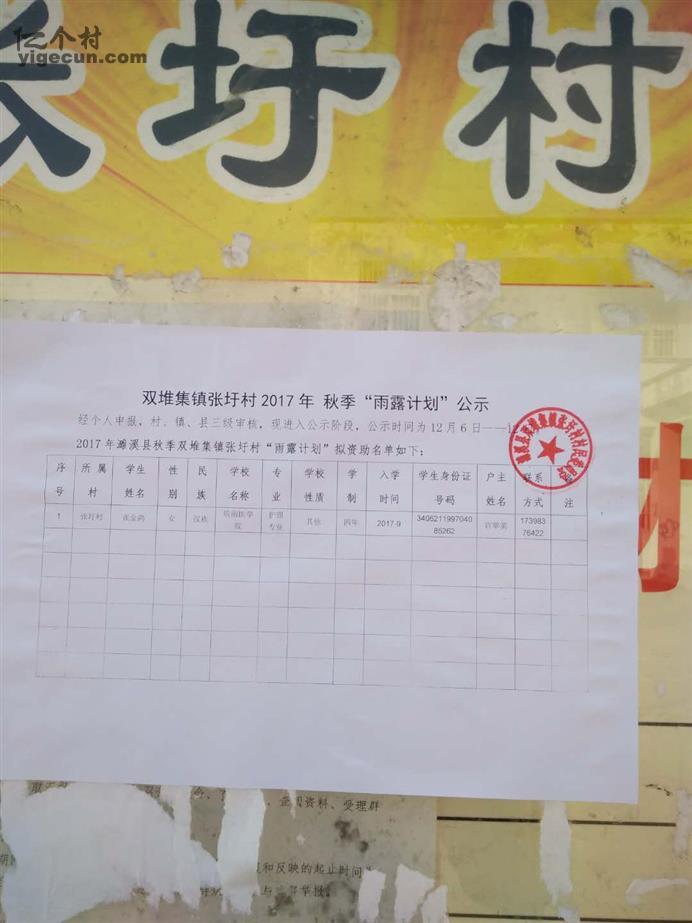 亿个村
yigecun.com
张圩村
双堆集镇张圩村 2017 年 秋季“雨露计划”公示
经个人申报,村、镇、县三级审核,现进入公示阶段,公示时间为 12 月 6 日——
2017 年濉溪县秋季双堆集镇张圩村“雨露计划”拟资助名单如下:
序号 所属村 学生姓名 性别 民族 学校名称 专业 学校性质 学制 入学时间 学生身份证号码 户主姓名 联系方式 注
1 张圩村 女 汉族 皖南医学院 护理专业 其他 四年 2017-9 340621199704085262 17398376422
企图资料、受理群
和反映的起止时间
举报。